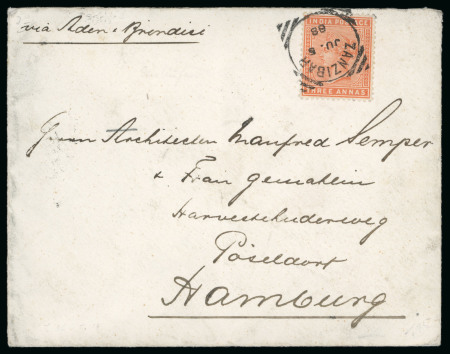 via Aden & Brindisi
INDIA POSTAGE
ZANZIBAR
JU. 5
88
THREE ANNAS
Herrn Architecten Manfred Semper
& Frau Gemahlin
Harvestehuderweg
Pöseldorf
Hamburg